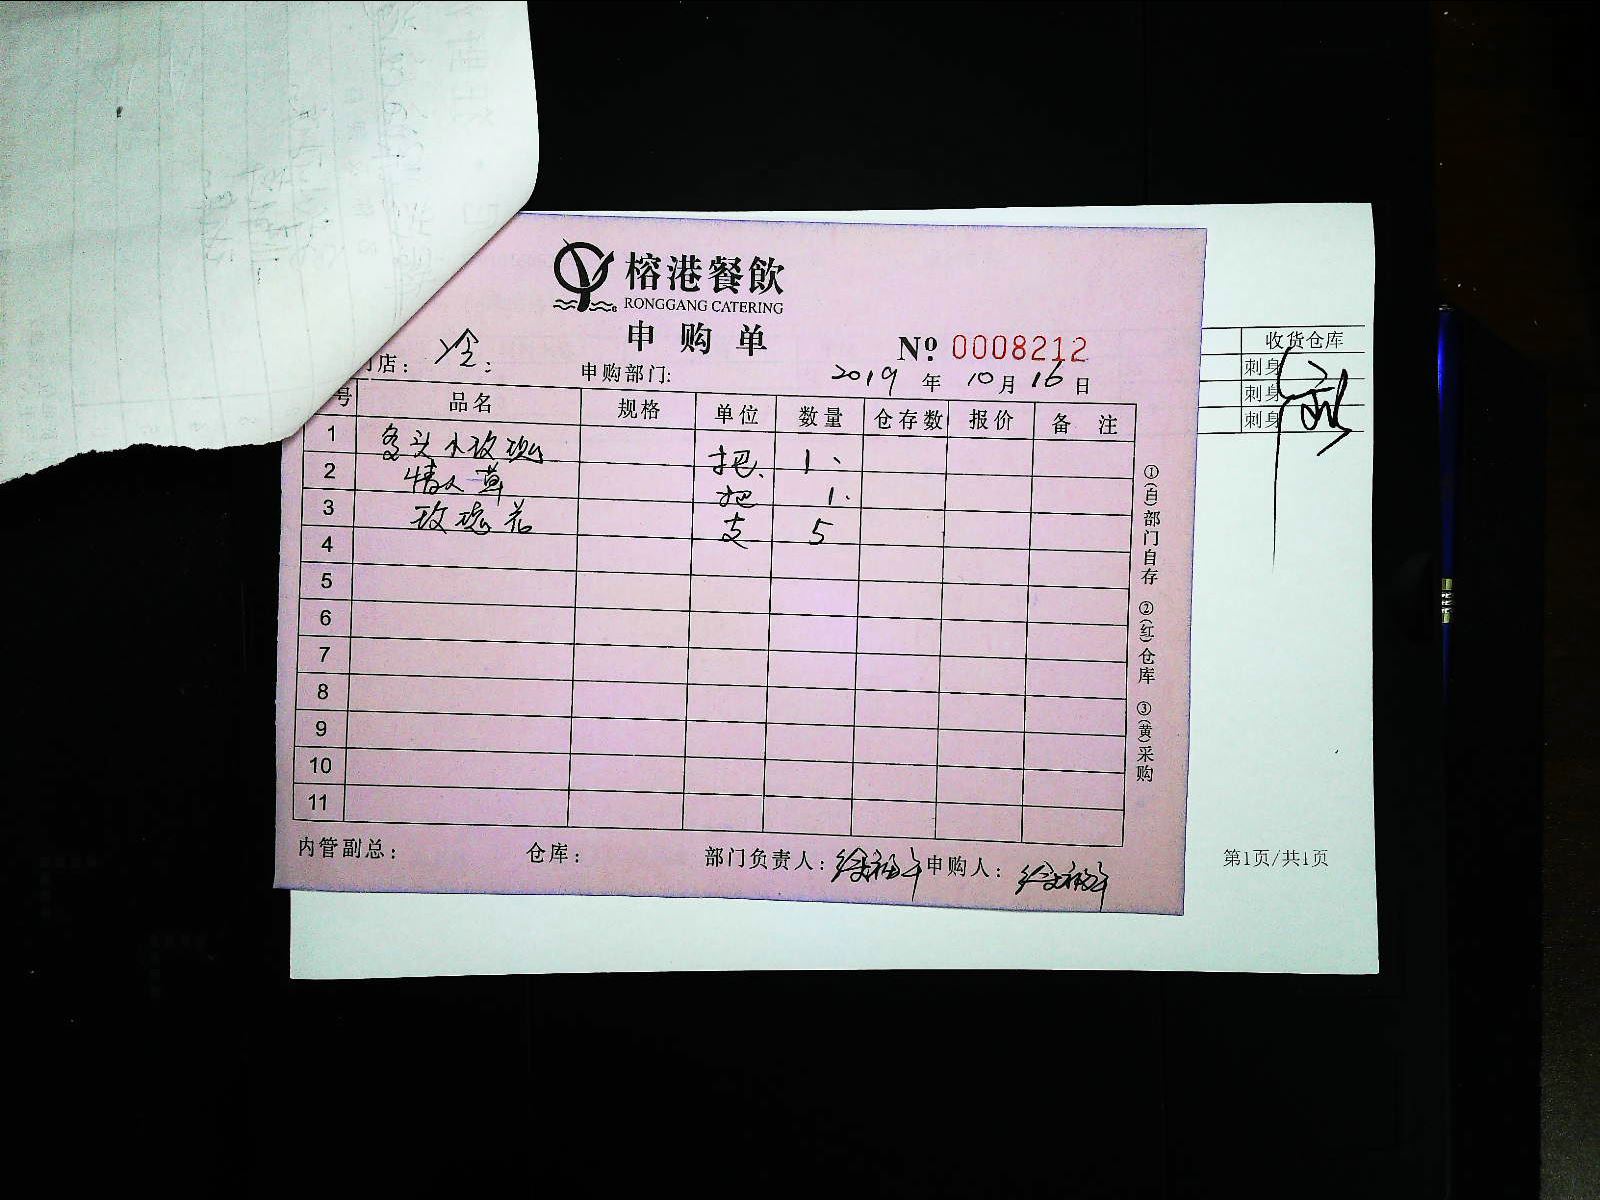 榕港餐飲
RONGGANG CATERING
申购单
№ 0008212
店： 冷：
申购部门: 2019 年 10 月 16 日
号 品名 规格 单位 数量 仓存数 报价 备注
1 多头小玫瑰 把、 1、
2 情人草 把 1.
3 玫瑰花 支 5
4
5
6
7
8
9
10
11
内管副总： 仓库： 部门负责人： 申购人：
①(白)部门自存 ②(红)仓库 ③(黄)采购
收货仓库
刺身
刺身
刺身
第1页/共1页